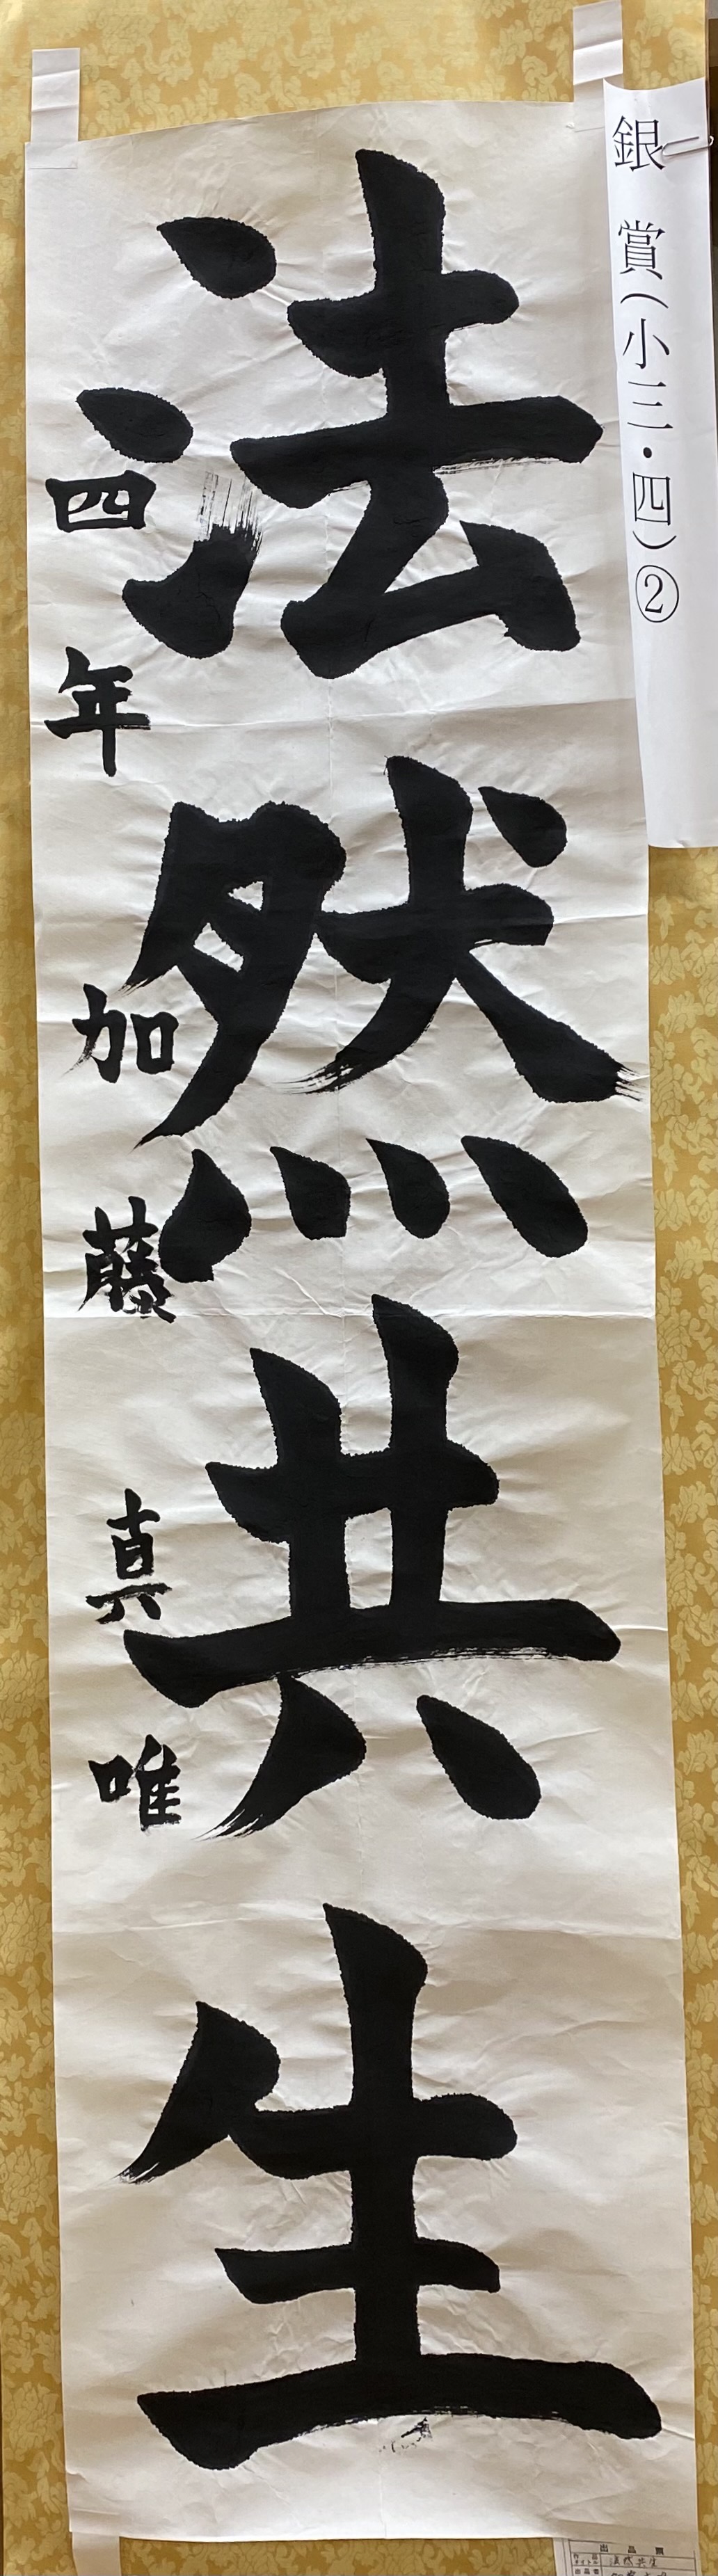 銀賞(小三・四)②
法然共生
四年 加藤真唯
出品票